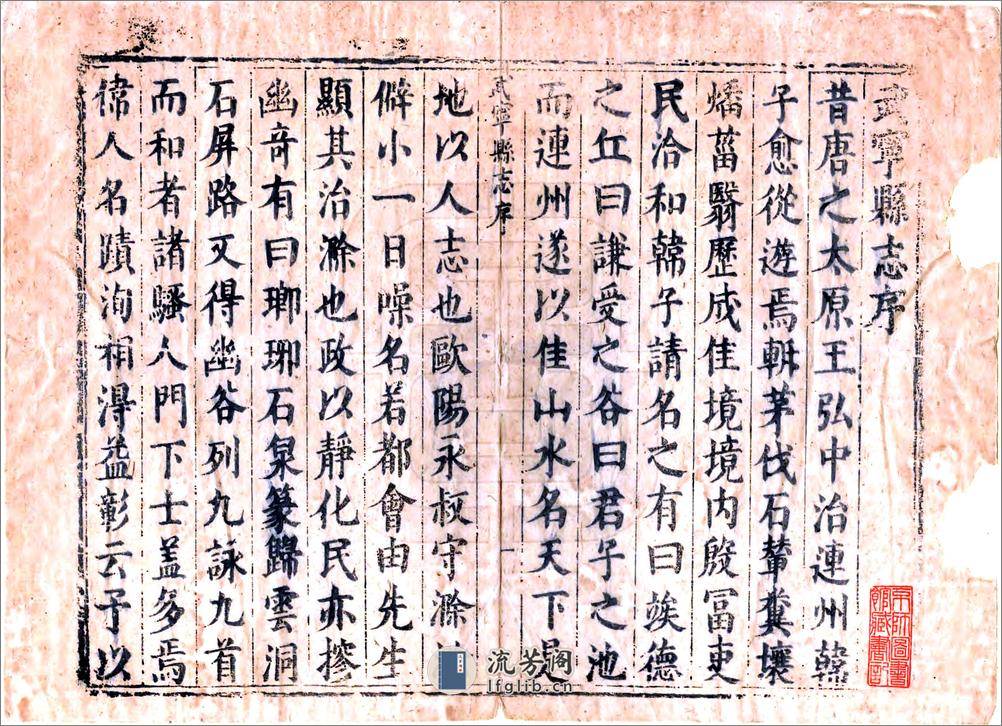 武寧縣志序
昔唐之太原王弘中治連州韓
子愈從遊焉斬茅伐石輦糞壤
燔菑翳歷成佳境境内殷冨吏
民洽和韓子請名之有曰竢德
之丘曰謙受之谷曰君子之池
而連州遂以佳山水名天下是
武寧縣志序
一
地以人志也歐陽永叔守滁
僻小一日噪名若都會由先生
顯其治滁也政以靜化民亦摉
幽奇有曰瑯琊石泉篆歸雲洞
石屏路又得幽谷列九詠九首
而和者諸騷人門下士盖多焉
偉人名蹟洵相得益彰云予以
流芳閣
lfglib.cn